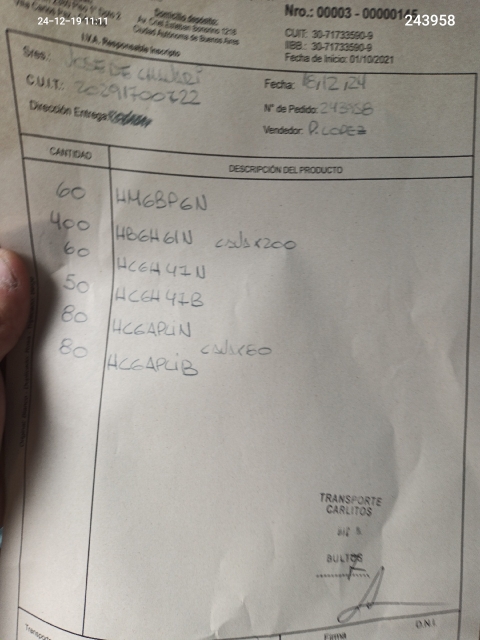 24-12-19 11:11
243958
Domicilio depósito:
Av. Cnel Esteban Bonorino 1218
Ciudad Autónoma de Buenos Aires
I.V.A. Responsable Inscripto
Nro.: 00003 - 00000165
CUIT: 30-71733590-9
IIBB.: 30-71733590-9
Fecha de Inicio: 01/10/2021
Sres:
JOSE DE
Fecha: 18/12/24
C.U.I.T.: 20291700722
N° de Pedido: 243958
Dirección Entrega:
Vendedor: P. LOPEZ
CANTIDAD
DESCRIPCIÓN DEL PRODUCTO
60 HM6BP6N
400 HB6H61N CAJAX200
60 HC6H47N
50 HC6H47B
80 HC6APLIN
80 HC6APLIB CAJAX80
TRANSPORTE
CARLITOS
BULTOS
Firma
D.N.I.